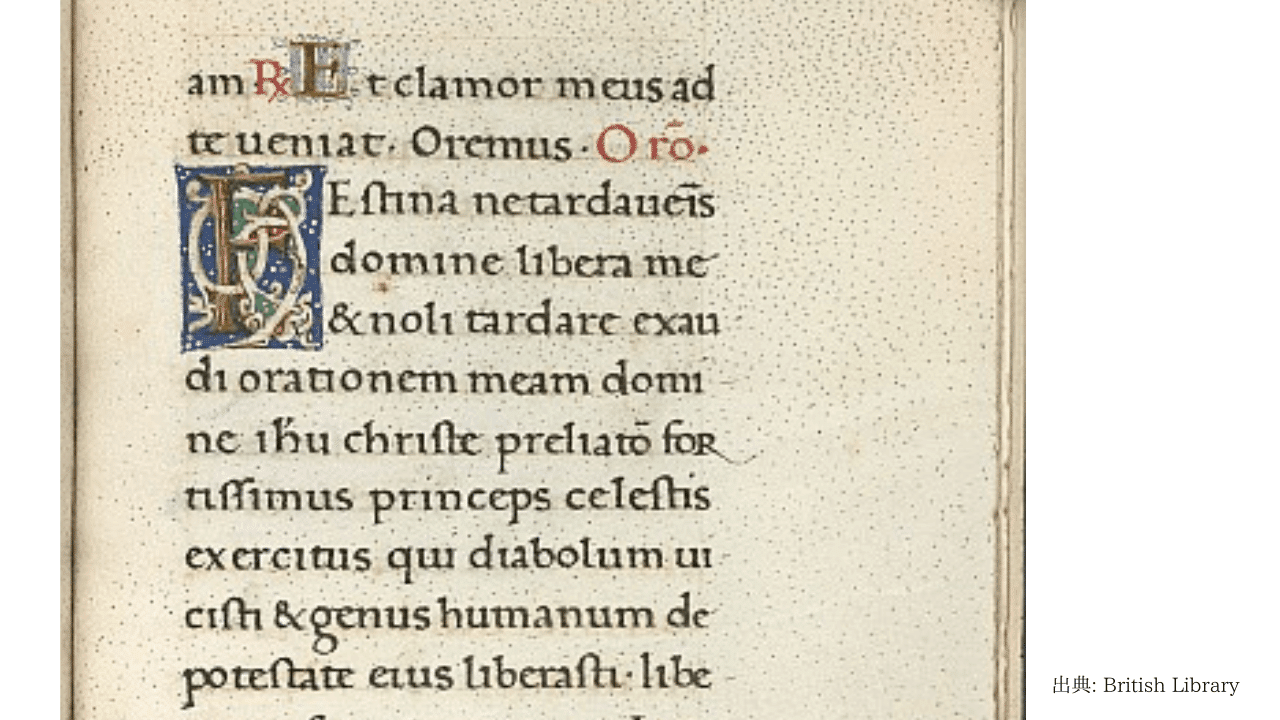 am ℞ Et clamor meus ad
te ueniat. Oremus · Orō·
FEstina ne tardaueīs
domine libera me
& noli tardare exau
di orationem meam domi
ne ihu christe preliatō for
tissimus princeps celestis
exercitus qui diabolum ui
cisti & genus humanum de
potestate eius liberasti · libe
出典: British Library